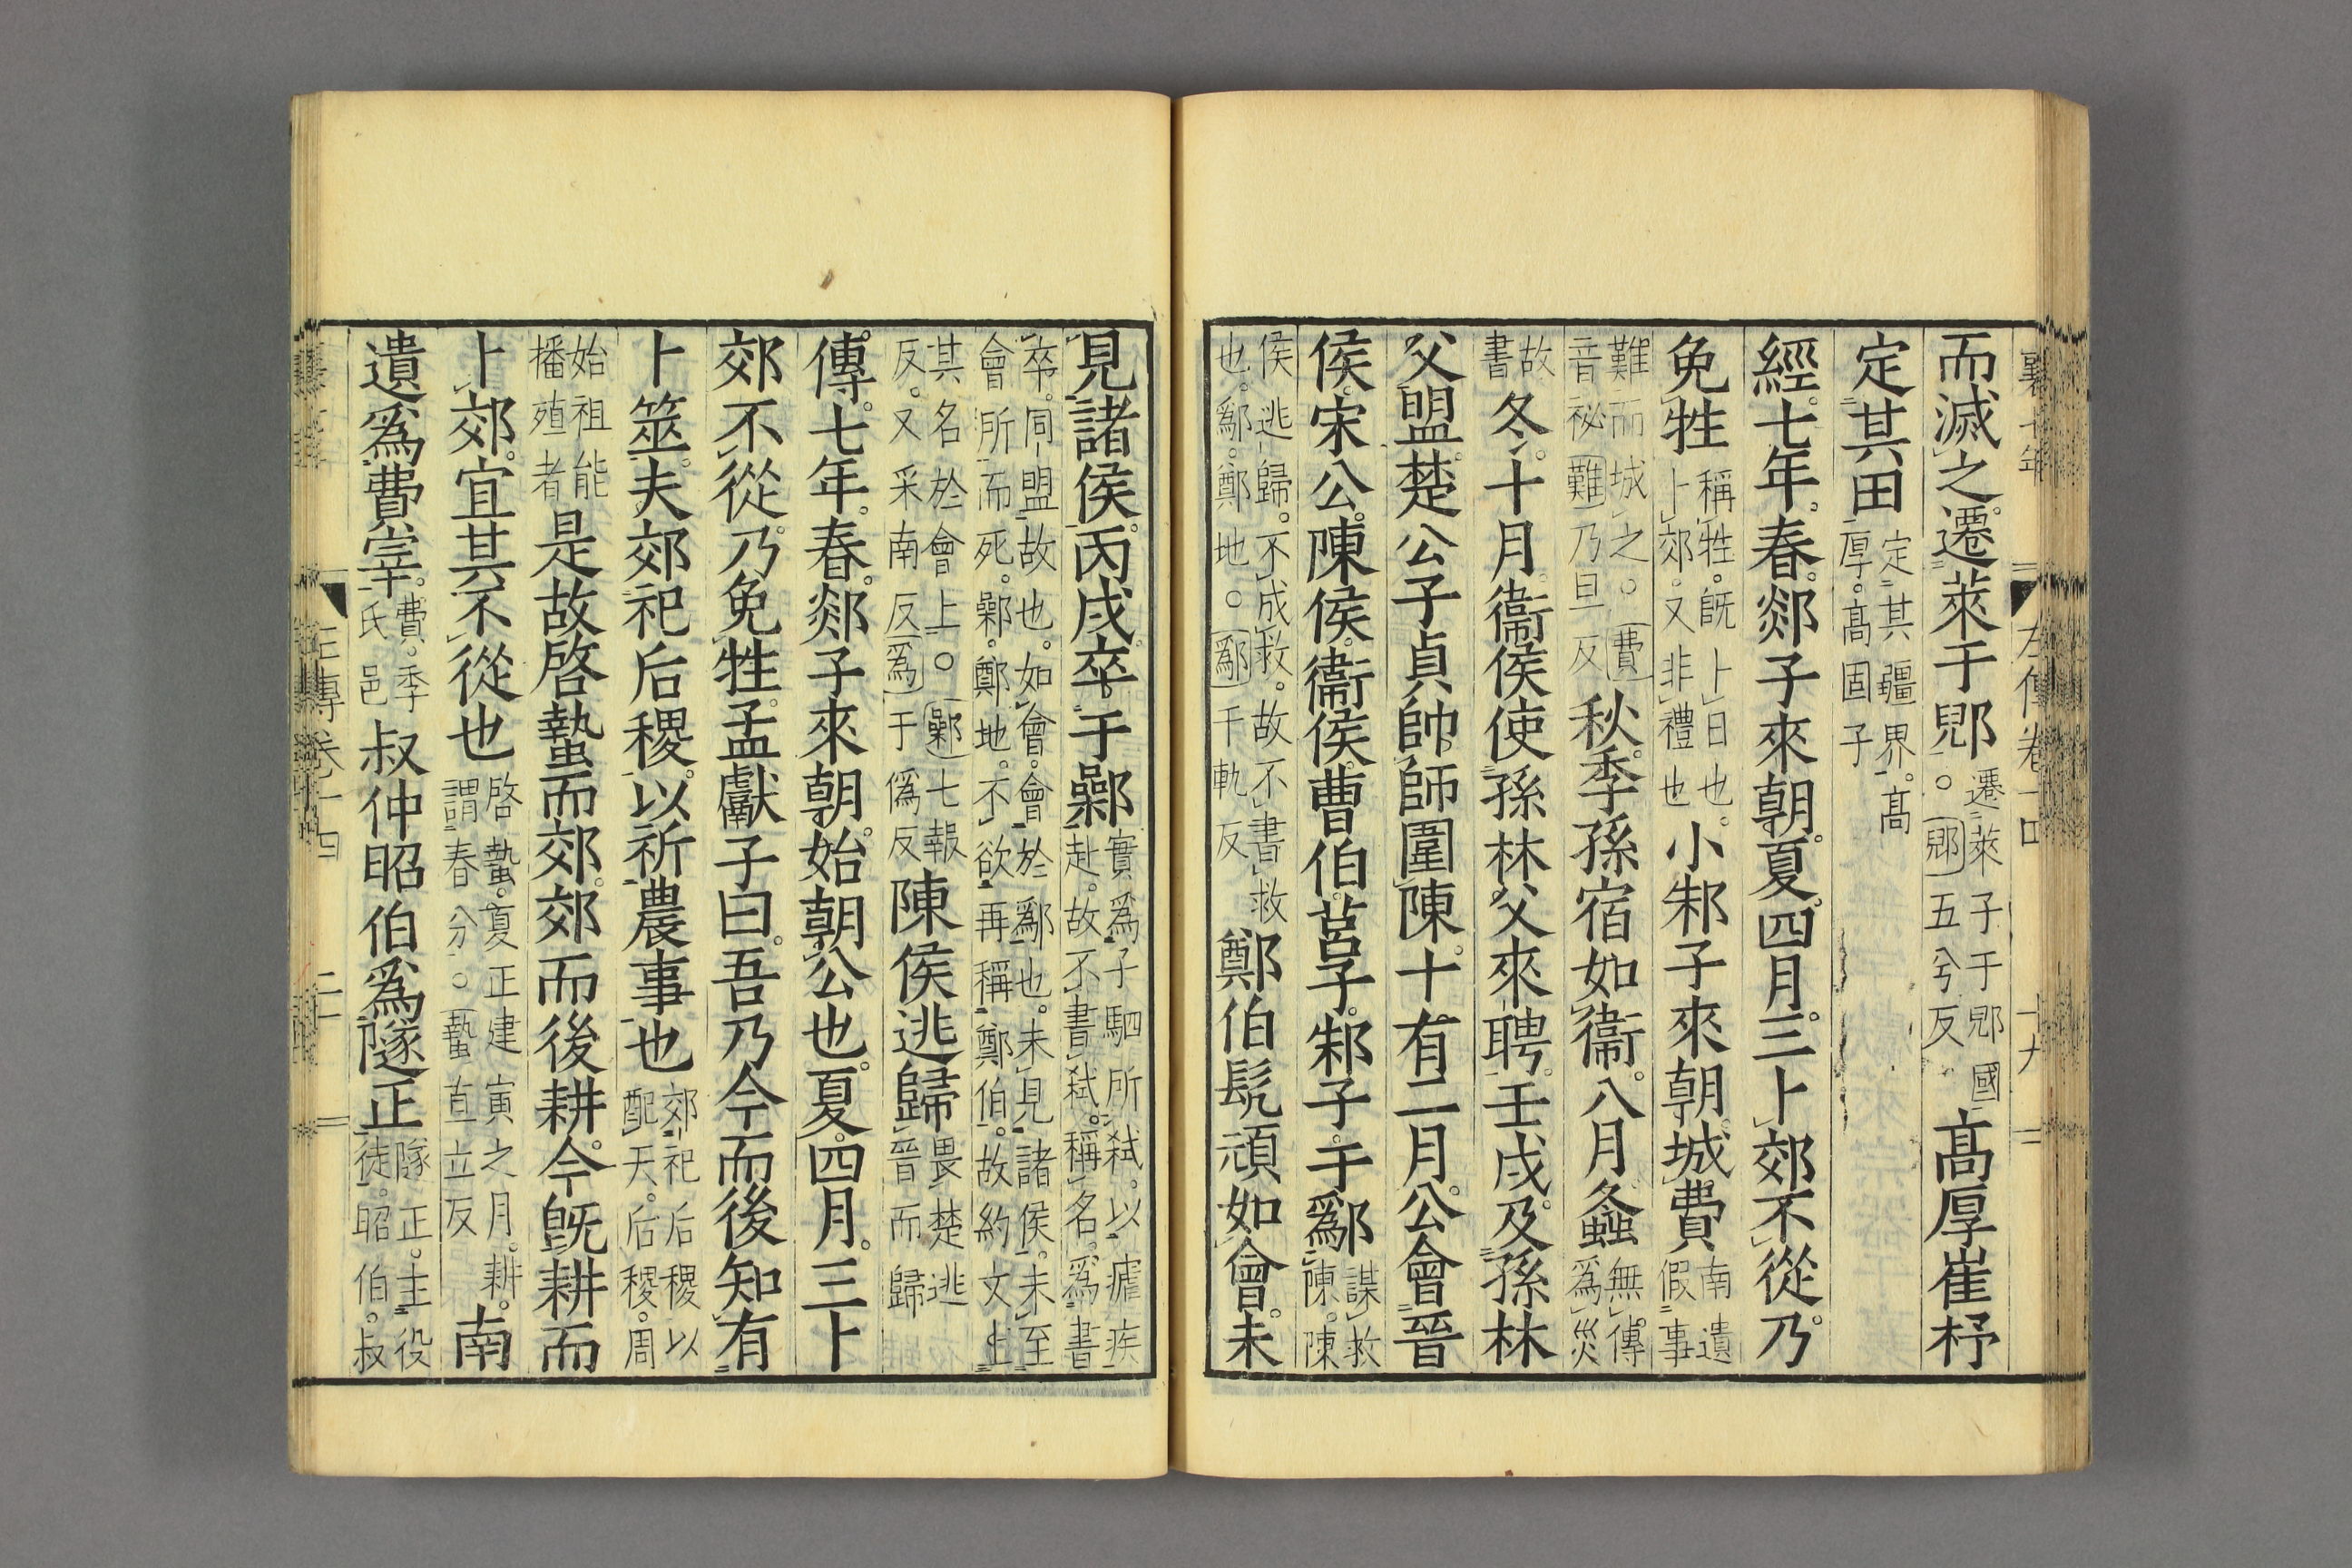 而滅之。遷萊于郳。遷萊子于郳國。郳五兮反。高厚崔杼
定其田定其疆界。高厚。高固子
經。七年。春。郯子來朝。夏。四月。三卜郊不從。乃
免牲稱牲。旣卜日也。卜郊。又非禮也。小邾子來朝。城費南遺假事
難而城之。費音祕難乃旦反秋。季孫宿如衞。八月螽無傳爲災
故書冬。十月。衞侯使孫林父來聘。壬戌。及孫林
父盟。楚公子貞帥師圍陳。十有二月。公會晉
侯。宋公。陳侯。衞侯。曹伯。莒子。邾子。于鄬謀救陳。陳
侯逃歸。不成救。故不書救也。鄬。鄭地。鄬于軌反鄭伯髡頑如會。未
見諸侯。丙戌。卒于鄵實爲子駟所弒。以瘧疾赴。故不書弒。稱名。爲書
卒。同盟故也。如會。會於鄬也。未見諸侯。未至會所而死。鄵。鄭地。不欲再稱鄭伯。故約文上
其名於會上。鄵七報反。又采南反爲于僞反陳侯逃歸畏楚逃晉而歸
傳。七年。春。郯子來朝。始朝公也。夏。四月。三卜
郊不從。乃免牲。孟獻子曰。吾乃今而後知有
卜筮。夫郊祀后稷。以祈農事也郊祀后稷以配天。后稷。周
始祖能播殖者是故啓蟄而郊。郊而後耕。今旣耕而
卜郊。宜其不從也啓蟄。夏正建寅之月。耕。謂春分。蟄直立反南
遺爲費宰。費。季氏邑叔仲昭伯爲隧正隧正。主役徒。昭伯。叔